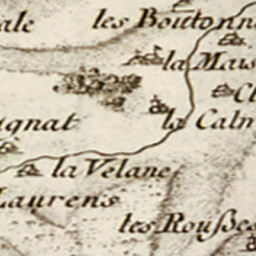 ale
les Bouttonn
la Mais
Cl
gnat
la Calm
la Velane
Laurens
les Rouſses